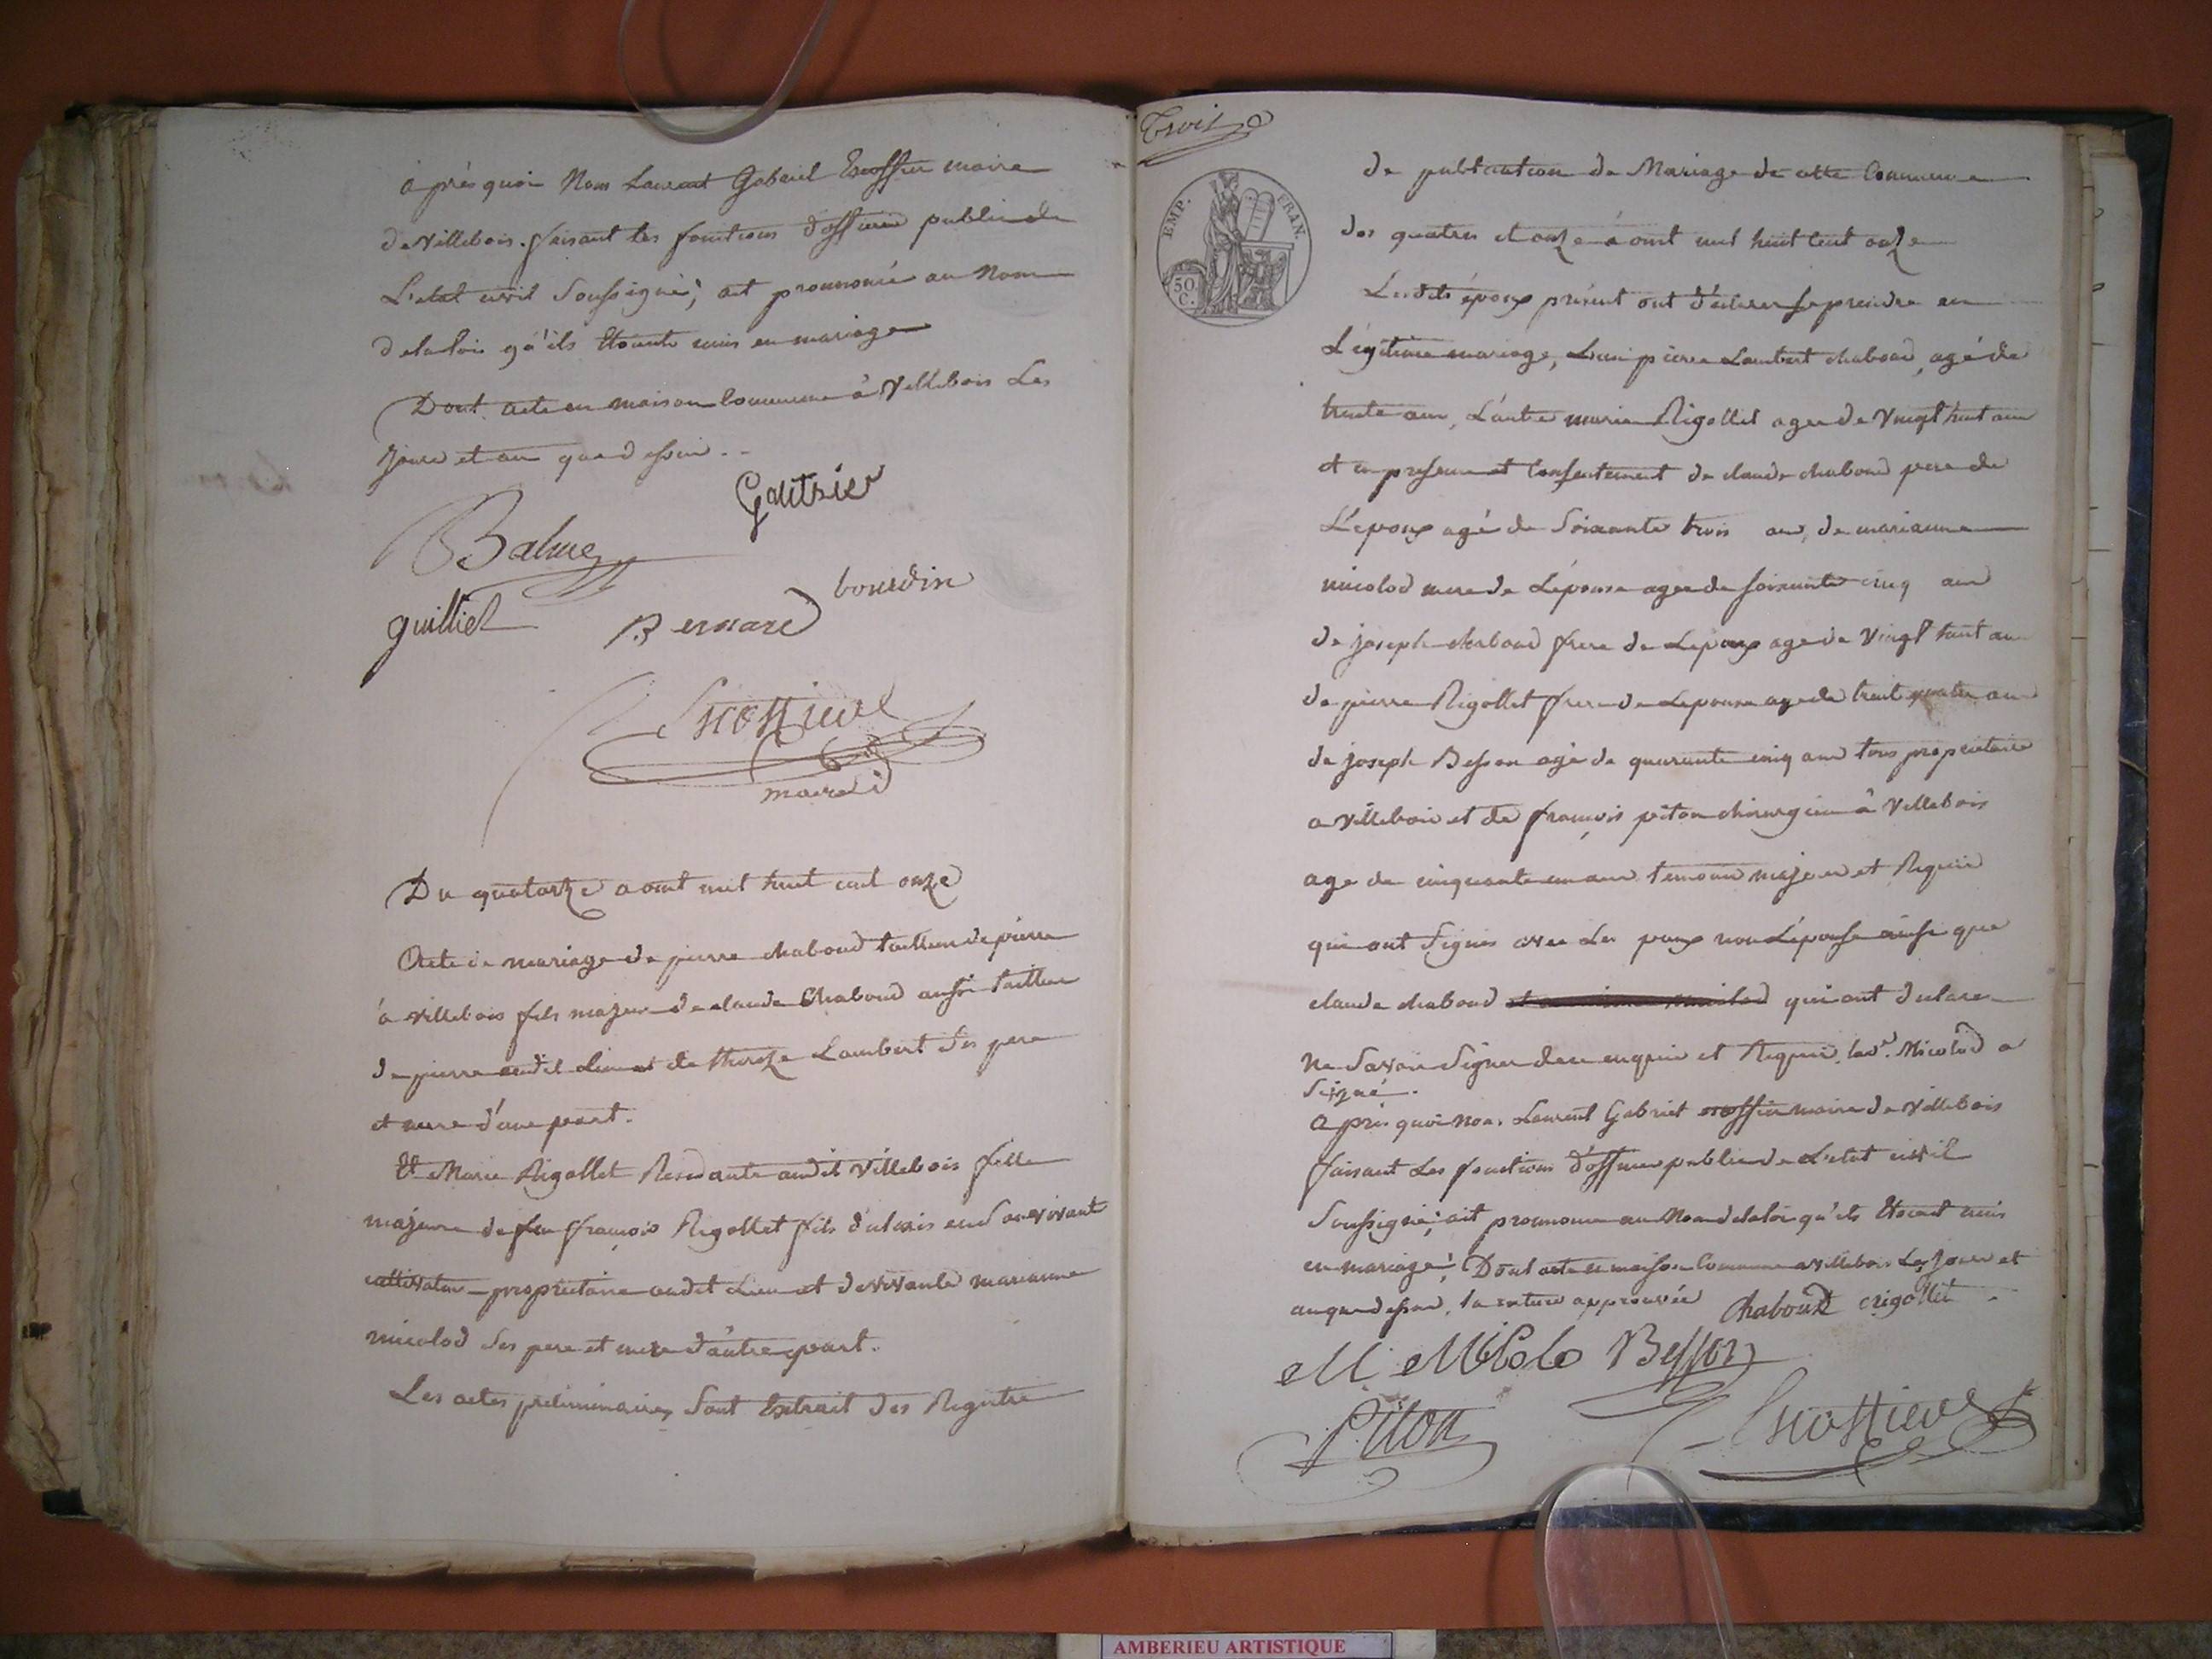 après quoi Nous Laurent Gabriel Escoffier maire
de Villebois. faisant les fonctions d'officier public de
L'etat civil Soussigné; ait prononcé au Nom
de la loix qu'ils étoient unis en mariage
Dont acte en maison Commune à Villebois Les
jour et an que dessus ..
Gautrier
Balme
bourdin
guilliet
Bernard
Escoffier
maire
Du quatorze aout mil huit cent onze
Acte de mariage de pierre chaboud tailleur de pierre
à villebois fils majeur de claude Chaboud aussi tailleur
de pierre audit lieu et de therese Lambert Ses pere
et mere d'une part.
Et Marie Rigollet Residante audit Villebois fille
majeure de feu françois Rigollet fils d'alexis en Son vivant
cultivateur propriétaire audit Lieu et de vivante marianne
micolod Ses pere et mere d'autre part.
Les actes preliminaires Sont Extrait des Registre
Trois
EMP. FRAN.
50 C.
de publication de Mariage de cette Commune
des quatres et onze aout mil huit Cent onze
Lesdits époux présent ont déclarer se prendre en
Légitime mariage, L'un pierre Lambert chaboud, agé de
trente ans, L'autre marie Rigollet agee de Vingt huit ans
et en presence et Consentement de claude chaboud pere de
L'epoux agé de Soixante trois ans, de marianne
micolod mere de L'épouse agee de soixante cinq ans
de joseph chaboud frere de Lepoux age de Vingt huit ans
de pierre Rigollet frere de Lepouse age de trent quatre ans
de joseph Besson agé de quarante cinq ans tous propriétaire
a villebois et de françois piton chirurgien à Villebois
age de cinquante un ans temoins majeur et Requis
qui ont Signés avec Les poux non L'épouse ainsi que
claude chaboud qui ont declare
Ne Savoir Signer de ce enquis et Requis. lad.e Micolod a
Signé.
après quoi nous Laurent Gabriel escoffier maire de Villebois
faisant Les fonctions d'officier public de L'etat civil
Soussigné; ait prononcé au Nom de la loi qu'ils étoient unis
en mariage; Dont acte en maison Commune a villebois Les jour et
an que dessus, la rature approuvée Chaboud rigollet
M. Micolo Besson
Piton
Escoffier
AMBERIEU ARTISTIQUE